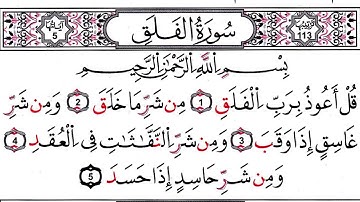 آياتها 5 سُورَةُ الْفَلَقِ ترتيبها 113
بِسْمِ اللَّهِ الرَّحْمَٰنِ الرَّحِيمِ
قُلْ أَعُوذُ بِرَبِّ الْفَلَقِ 1 مِن شَرِّ مَا خَلَقَ 2 وَمِن شَرِّ
غَاسِقٍ إِذَا وَقَبَ 3 وَمِن شَرِّ النَّفَّاثَاتِ فِي الْعُقَدِ 4
وَمِن شَرِّ حَاسِدٍ إِذَا حَسَدَ 5